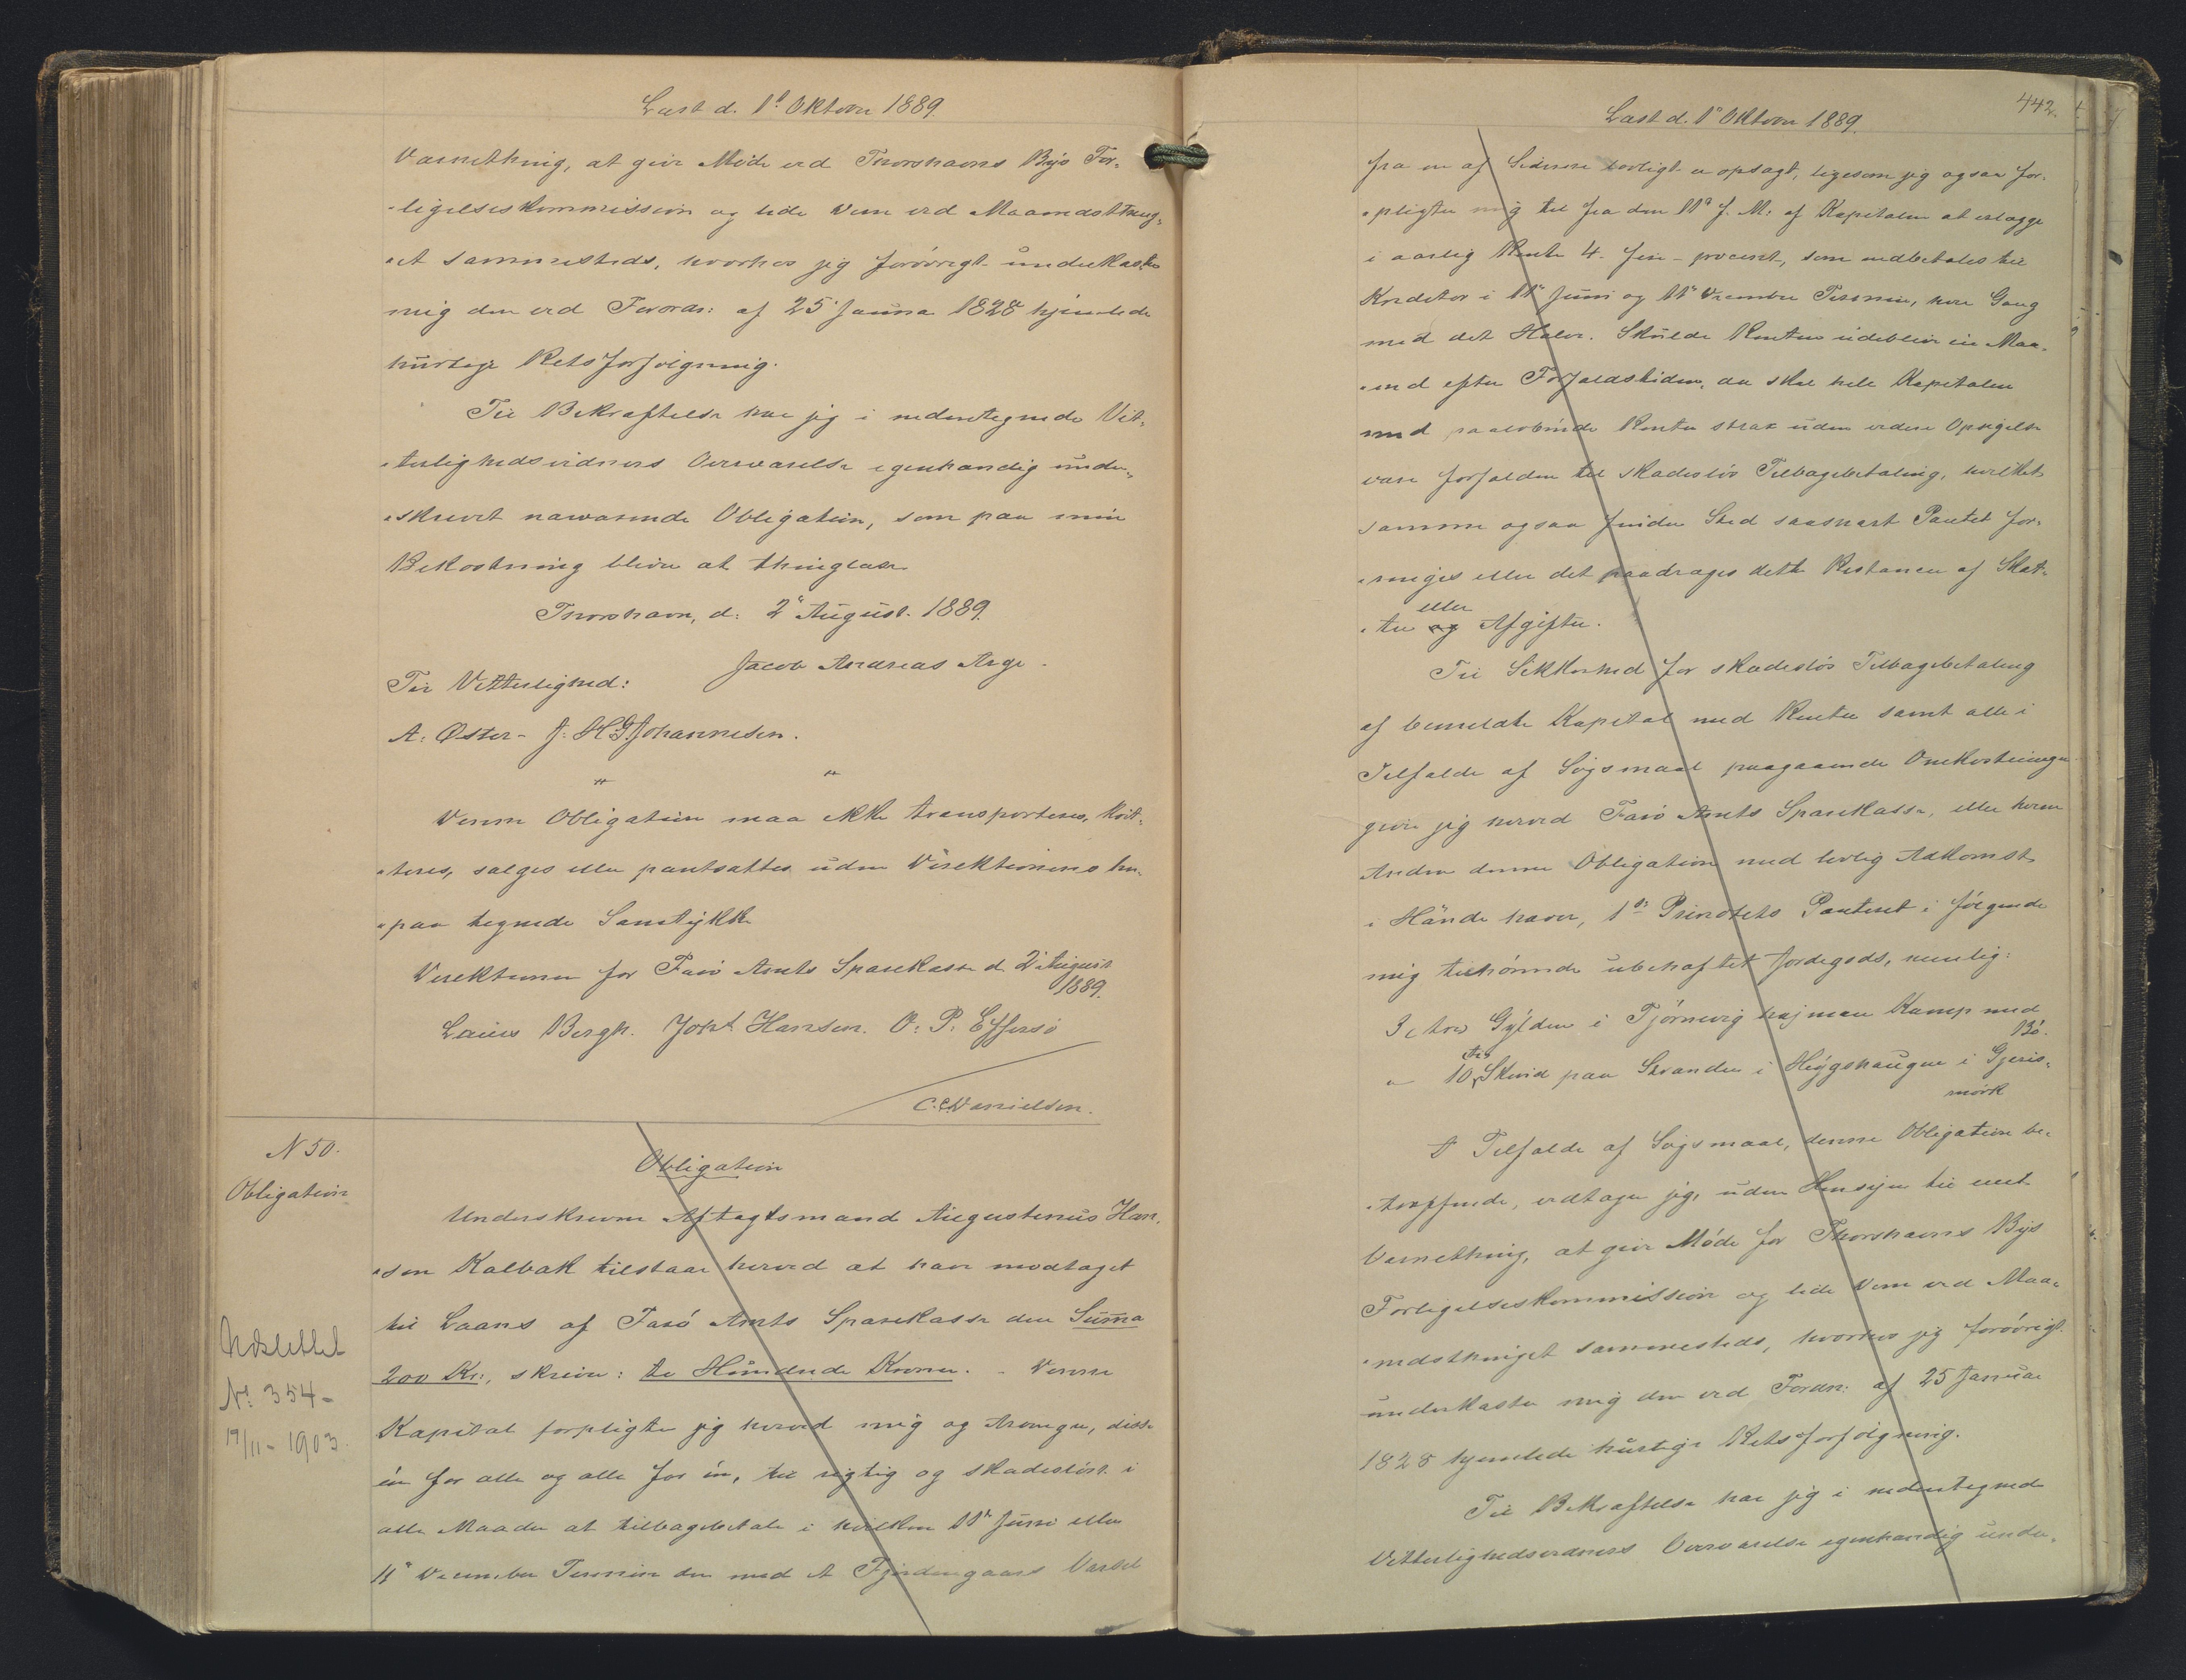 Læst d. 1ᵗ Oktober 1889.
Værnething, at give Møde ved Thorshavns Byes For-
-ligelseskommission og lide Dom ved Maanedsthing-
-et sammesteds, hvorhos jeg forøvrigt underkaster
mig den ved Forordn: af 25 Januar 1828 hjemlede
hurtige Retsforfølgning.
Til Bekræftelse har jeg i nedentegnede Vit-
-terlighedsvidners Overværelse egenhændig under-
-skrevet nærværende Obligation, som paa min
Bekostning bliver at thinglæse.
Thorshavn, d: 2ⁿ August 1889.
Jacob Andreas Arge.
Til Vitterlighed:
A. Øster- J. H. G. Johannesen.
Denne Obligation maa ikke transporteres, kvit-
-teres, sælges eller pantsættes uden Direktionens her-
-paa tegnede Samtykke
Direktionen for Færø Amts Sparekasse d. 2ⁿ August
1889.
Louis Bergh. Johs Hansen. O. P. Effersø
C. C. Danielsen.
N 50.
Obligation
Obligation
Underskrevne Aftægtsmand Augustinus Han-
-sen Kalbak tilstaar herved at have modtaget
til Laans af Færø Amts Sparekasse den Suma
200 Kr:, skriver: to Hundrede Kroner. - Denne
Kapital forpligter jeg herved mig og Arvinger, disse
én for alle og alle for én, til rigtig og skadesløst i
alle Maader at tilbagebetale i hvilken 11ⁿ Juni eller
11ⁿ December Termin den med et Fjerdingaars Varsel
Udslettet
Nº 354-
19/11-1903.
442.
Læst d. 1ⁿ Oktober 1889.
fra en af Siderne lovligt er opsagt, ligesom jeg ogsaa for-
-pligter mig til fra den 11ⁿ f. M: af Kapitalen at erlægge
i aarlig Rente 4- fire - procent, som indbetales til
Kreditor i 11ⁿ Juni og 11ⁿ December Termin, hver Gang
med det Halve. Skulde Renten udeblive en Maa-
-ned efter Forfaldstiden, da skal hele Kapitalen
med paaløbende Renter strax uden videre Opsigelse
være forfalden til skadesløs Tilbagebetaling, hvilket
samme ogsaa finder Sted saasnart Pantet for-
-ringes eller det paadrages dette Restancer af Skat-
eller
-ter og Afgifter.
Til Sikkerhed for skadesløs Tilbagebetaling
af bemeldte Kapital med Renter samt alle i
Tilfælde af Søgsmaal paagaaende Omkostninger
giver jeg herved Færø Amts Sparekasse, eller hvem
Anden denne Obligation med lovlig Adkomst
i Hænde haver, 1ˢᵗᵉ Prioritets Panteret i følgende
mig tilhørende ubehæftet Jordegods, nemlig:
3 tre Gylden i Tjørnevig hajman Kamp med
Bø.
" 10 ti Skind paa Stranden i Høygshaugen i Gjeris-
mørk
I Tilfælde af Søgsmaal, denne Obligation be-
-træffende, vedtager jeg, uden Hensyn til mit
Værnething, at give Møde for Thorshavns Byes
Forligelseskommission og lide Dom ved Maa-
-nedsthinget sammesteds, hvorhos jeg forøvrigt
underkaster mig den ved Fordn: af 25 Januar
1828 hjemlede hurtige Retsforfølgning.
Til Bekræftelse har jeg i nedentegnede
Vitterlighedsvidners Overværelse egenhændig under-